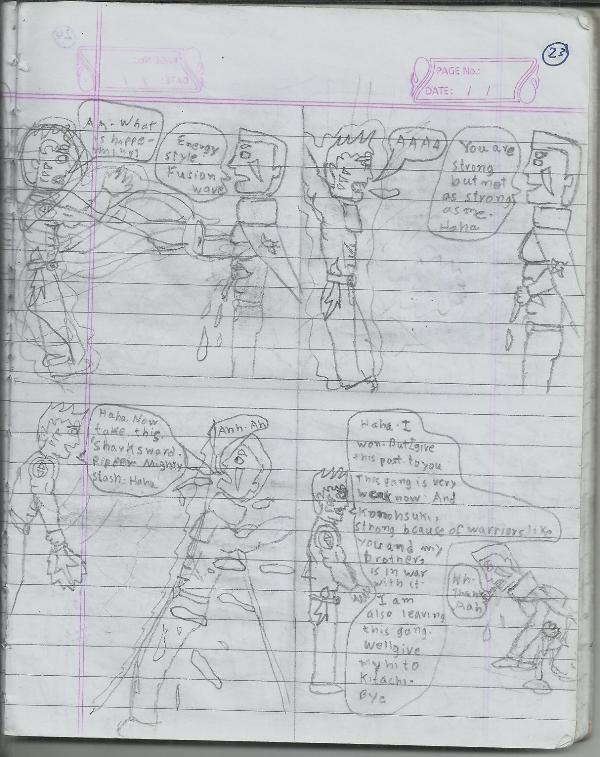 23
PAGE No.:
DATE: / /
Ah. What
is happe-
ning!
Energy
style
Fusion
wave
AAAA
You are
strong
but not
as strong
as me.
Haha
Haha. Now
take this
Sharksward.
Ripper Mughty
Slash. Haha
Ahh. Ah
Haha. I
won. But I give
this post to you
This gang is very
weak now. And
Konohsuki,
strong bcause of warriors like
you and my
brother,
is in war
with it.
I am
also leaving
this gang.
Well give
my hi to
Kitachi.
Bye
Thank
Aah